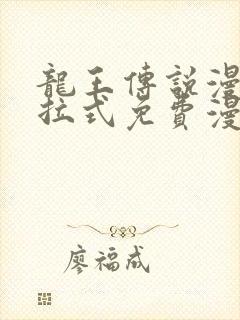 龍王傳説漫
拉式免費漫
廖福成